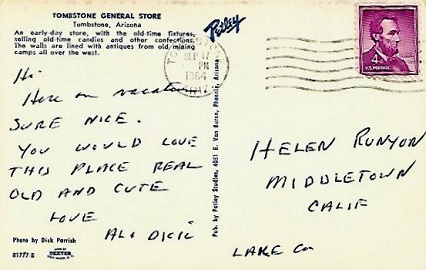 TOMBSTONE GENERAL STORE
Tombstone, Arizona
An early-day store, with the old-time fixtures,
selling old-time candies and other confections.
The walls are lined with antiques from old mining
camps all over the west.
Petley
TOMBSTONE
SEP 17
PM
1964
ARIZ.
4¢
U.S. POSTAGE
Hi
Here on vacation
SURE NICE.
YOU WOULD LOVE
THIS PLACE REAL
OLD AND CUTE
LOVE
AL & DICIE
HELEN RUNYON
MIDDLETOWN
CALIF
LAKE Co
Photo by Dick Parrish
81777-B
DEXTER
Pub. by Petley Studios, 4051 E. Van Buren, Phoenix, Arizona